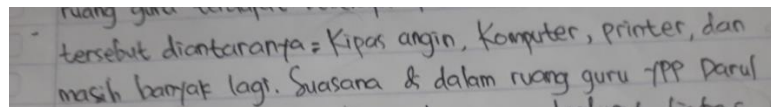 ruang guru
tersebut diantaranya = Kipas angin, Komputer, printer, dan
masih banyak lagi. Suasana & dalam ruang guru YPP Darul